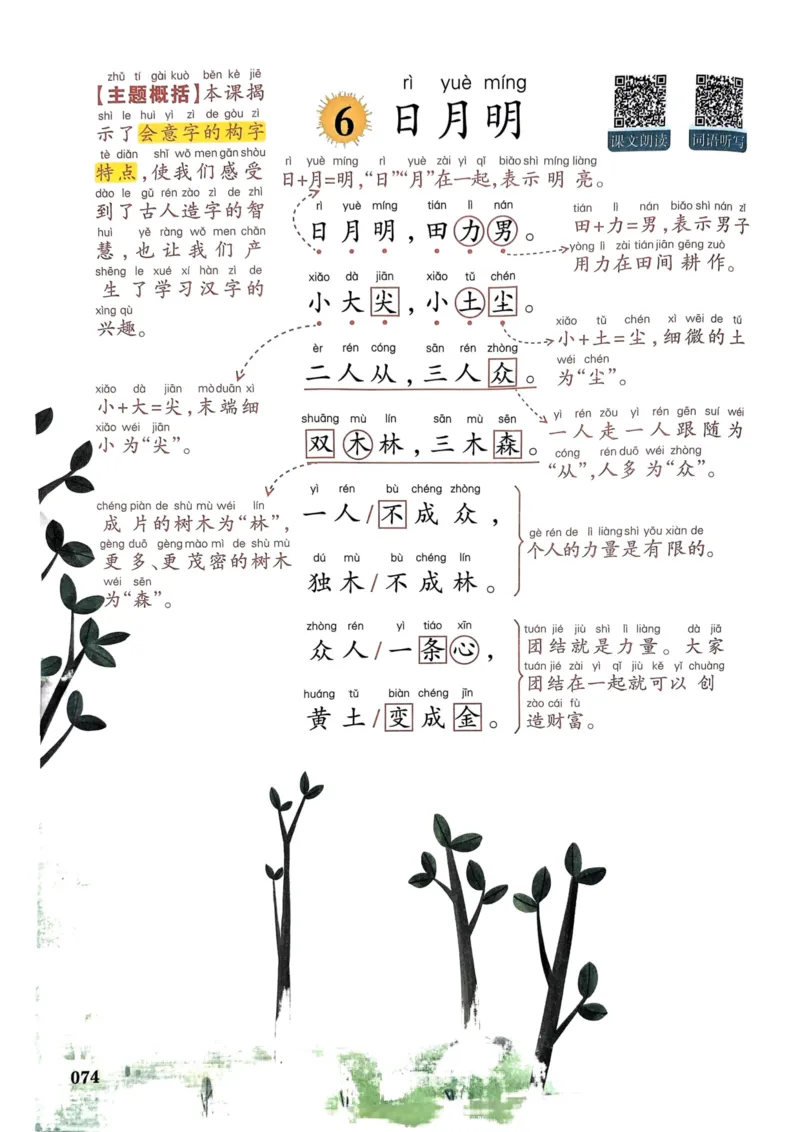 rì yuè míng
6 日月明
课文朗读 词语听写
zhǔ tí gài kuò běn kè jiē
【主题概括】本课揭
shì le huì yì zì de gòu zì
示了会意字的构字
tè diǎn shǐ wǒ men gǎn shòu
特点,使我们感受
dào le gǔ rén zào zì de zhì
到了古人造字的智
huì yě ràng wǒ men chǎn
慧,也让我们产
shēng le xué xí hàn zì de
生了学习汉字的
xìng qù
兴趣。
rì yuè míng rì yuè zài yì qǐ biǎo shì míng liàng
日+月=明,“日”“月”在一起,表示明亮。
rì yuè míng tián lì nán
日月明,田力男。
tián lì nán biǎo shì nán zǐ
田+力=男,表示男子
yòng lì zài tián jiān gēng zuò
用力在田间耕作。
xiǎo dà jiān xiǎo tǔ chén
小大尖,小土尘。
xiǎo tǔ chén xì wēi de tǔ
小+土=尘,细微的土
wéi chén
为“尘”。
èr rén cóng sān rén zhòng
二人从,三人众。
xiǎo dà jiān mò duān xì
小+大=尖,末端细
xiǎo wéi jiān
小为“尖”。
yì rén zǒu yì rén gēn suí wéi
一人走一人跟随为
cóng rén duō wéi zhòng
“从”,人多为“众”。
shuāng mù lín sān mù sēn
双木林,三木森。
chéng piàn de shù mù wéi lín
成片的树木为“林”,
gèng duō gèng mào mì de shù mù
更多、更茂密的树木
wéi sēn
为“森”。
yì rén bù chéng zhòng
一人/不成众,
dú mù bù chéng lín
独木/不成林。
gè rén de lì liàng shì yǒu xiàn de
个人的力量是有限的。
zhòng rén yì tiáo xīn
众人/一条心,
huáng tǔ biàn chéng jīn
黄土/变成金。
tuán jié jiù shì lì liàng dà jiā
团结就是力量。大家
tuán jié zài yì qǐ jiù kě yǐ chuàng
团结在一起就可以创
zào cái fù
造财富。
074